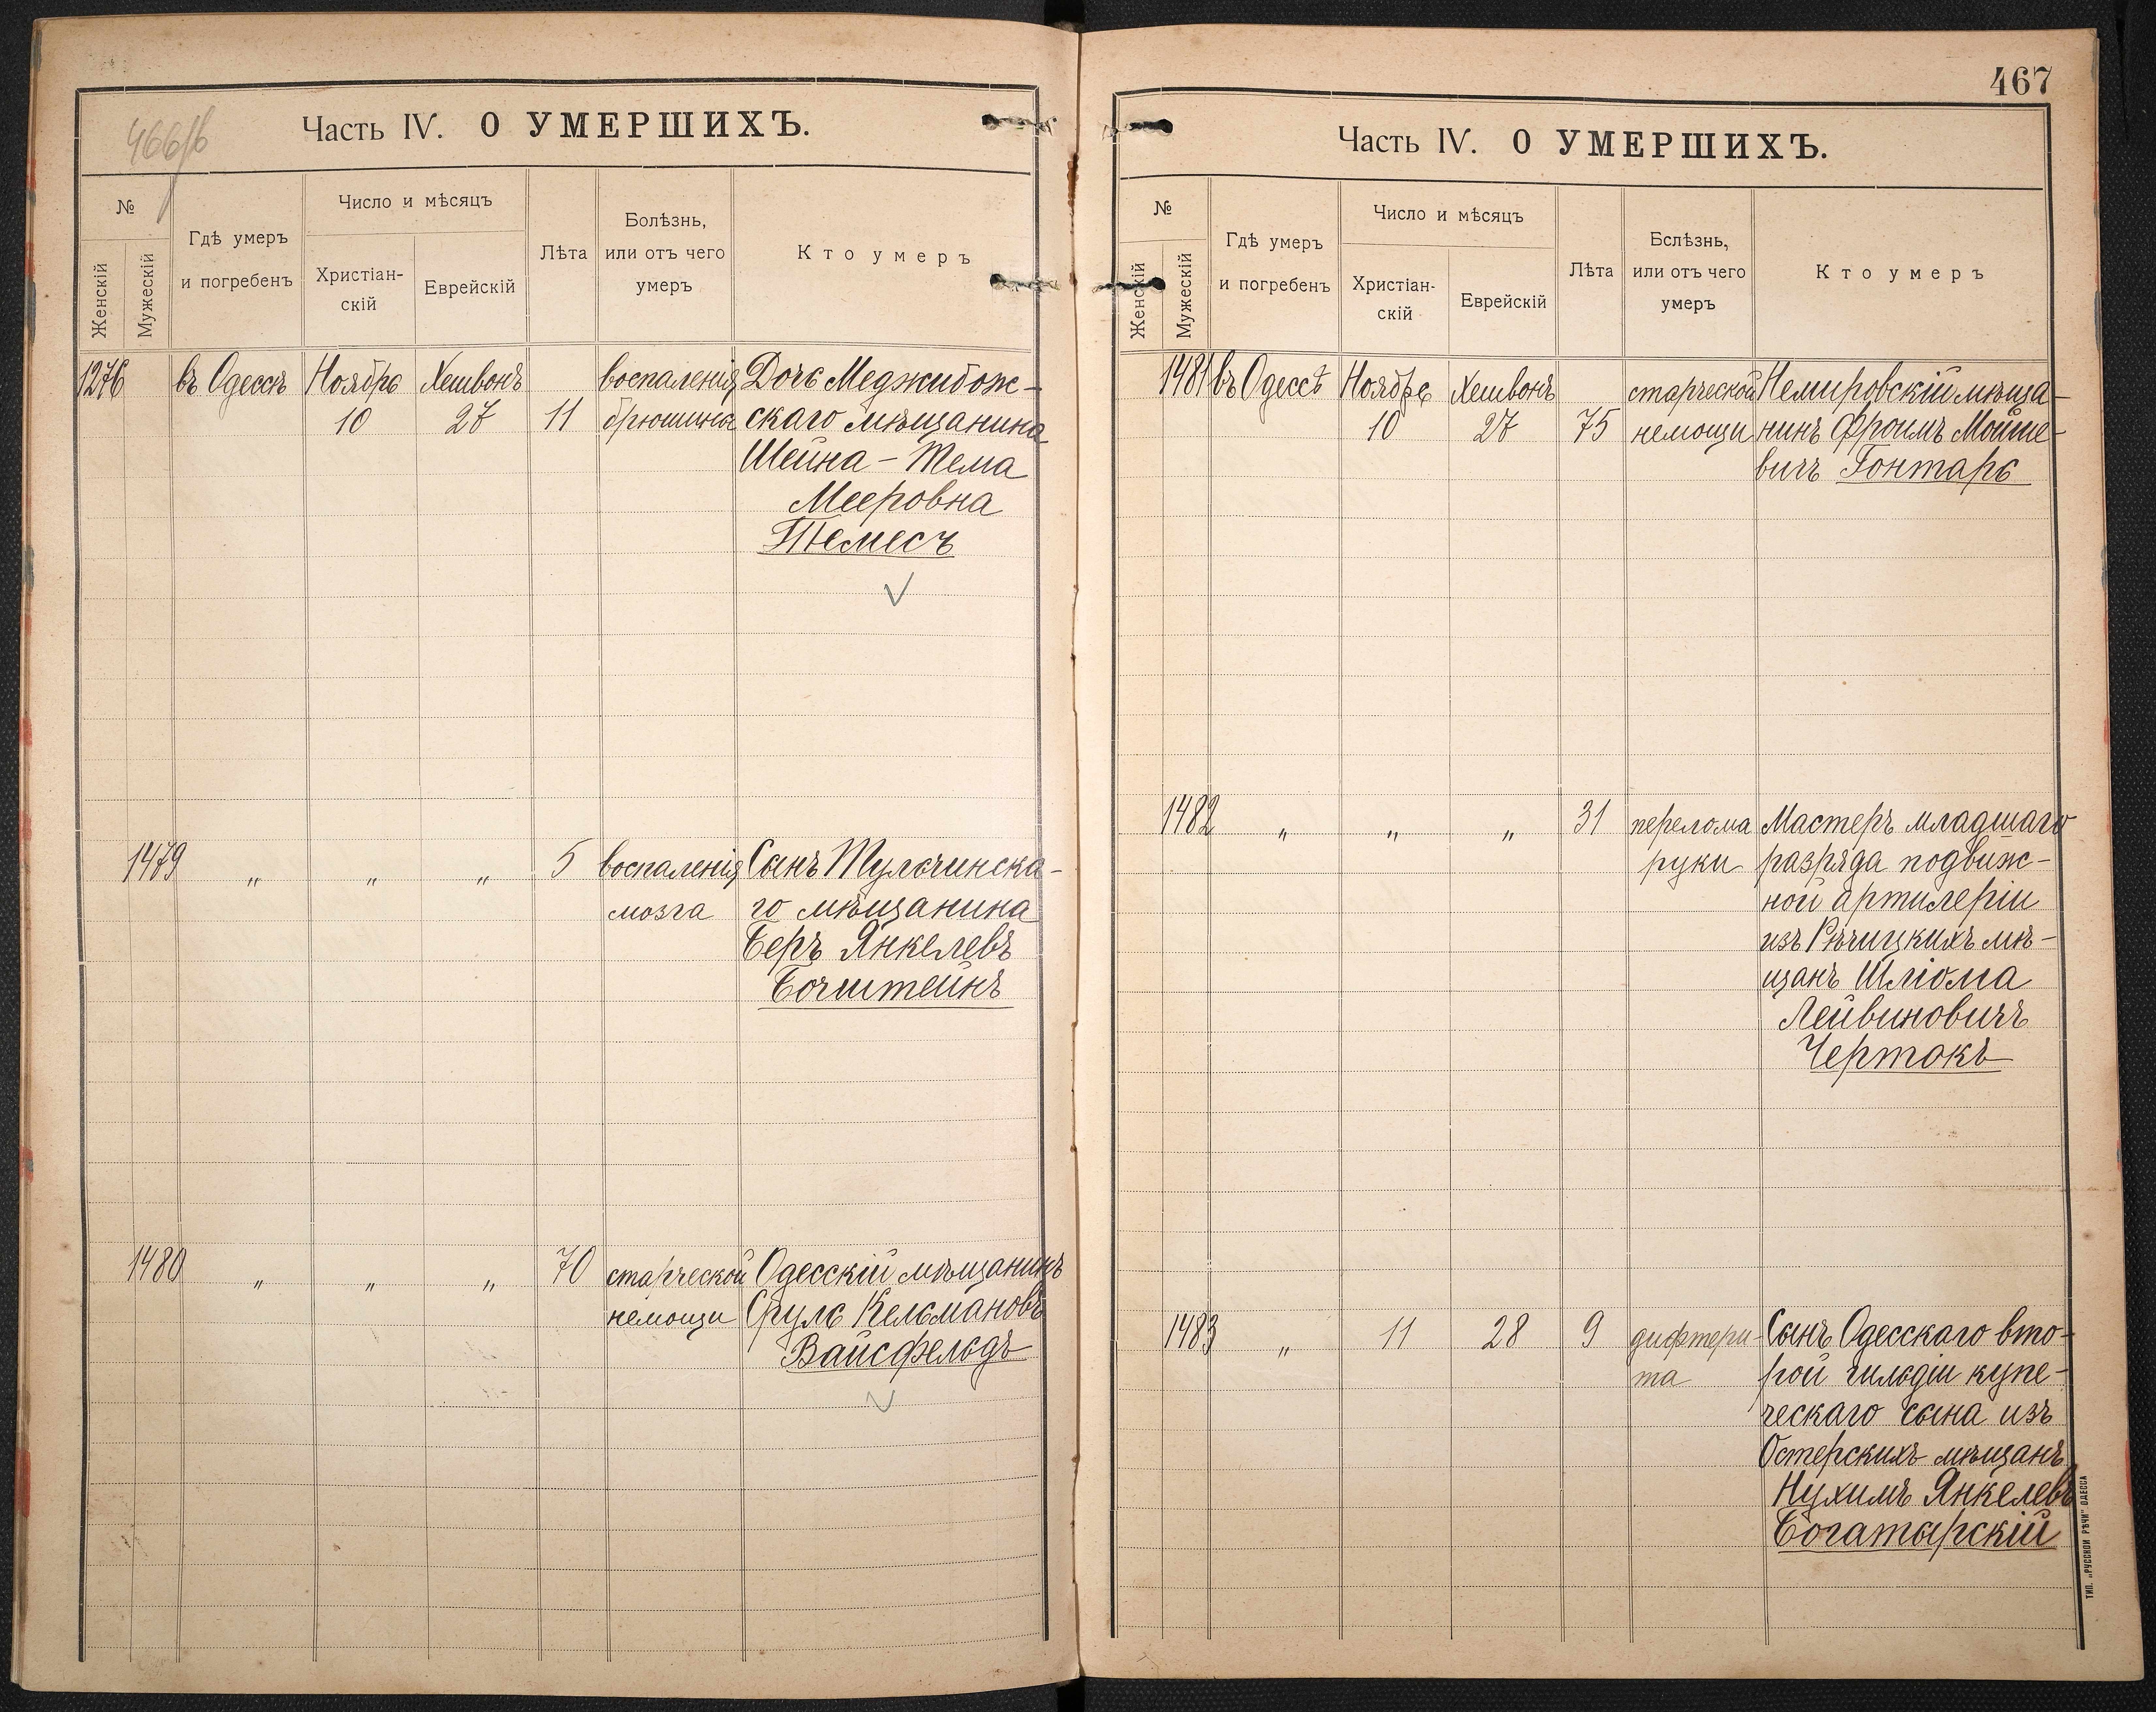 466об
Часть IV. О УМЕРШИХЪ.
№
Женскій
Мужескій
Гдѣ умеръ
и погребенъ
Число и мѣсяцъ
Христіан-
скій
Еврейскій
Лѣта
Болѣзнь,
или отъ чего
умеръ
Кто умеръ
1276 въ Одессѣ Ноября Хешвонъ воспаленія Дочь Меджибож-
10 27 11 брюшины скаго мѣщанина
Шейна-Тема
Мееровна
Темесъ
1479 " " " 5 воспаленія Сынъ Тульчинска-
мозга го мѣщанина
Беръ Янкелевъ
Бочштейнъ
1480 " " " 70 старческой Одесскій мѣщанинъ
немощи Сруль Кельмановъ
Вайсфельдъ
467
Часть IV. О УМЕРШИХЪ.
№
Женскій
Мужескій
Гдѣ умеръ
и погребенъ
Число и мѣсяцъ
Христіан-
скій
Еврейскій
Лѣта
Бслѣзнь,
или отъ чего
умеръ
Кто умеръ
1481 въ Одессѣ Ноября Хешвонъ старческой Немировскій мѣща-
10 27 75 немощи нинъ Фроимъ Мойше-
вичъ Гонтарь
1482 " " " 31 перелома Мастеръ младшаго
руки разряда подвиж-
ной артилеріи
изъ Рѣчицкихъ мѣ-
щанъ Шліома
Лейвиновичъ
Чертокъ
1483 " 11 28 9 дифтери- Сынъ Одесскаго вто-
та рой гильдіи купе-
ческаго сына изъ
Остерскихъ мѣщанъ
Нухимъ Янкелевъ
Богатырскій
ТИП. „РУССКОЙ РѢЧИ" ОДЕССА